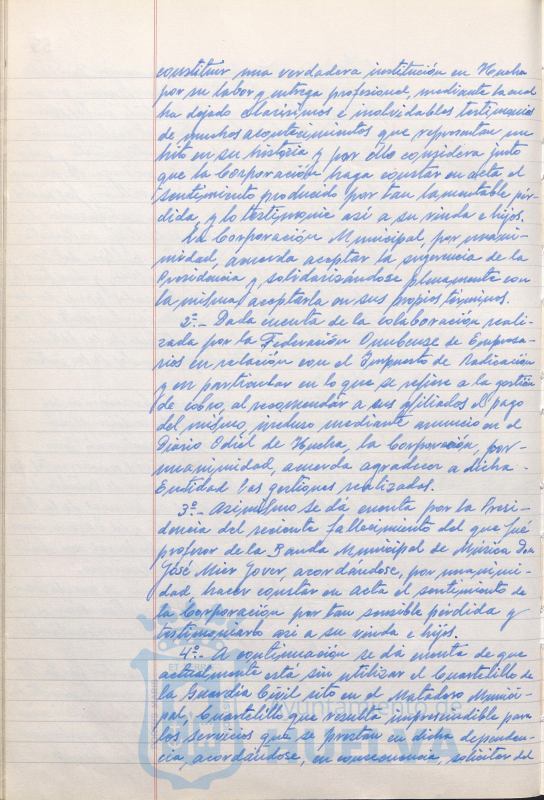 constituir una verdadera institución en Huelva
por su labor y entrega profesional, mediante la cual
ha dejado clarísimos e inolvidables testimonios
de muchos acontecimientos que representan un
hito en su historia y por ello considera justo
que la Corporación haga constar en acta el
sentimiento producido por tan lamentable pér-
dida, y lo testimonie así a su viuda e hijos.
La Corporación Municipal, por unani-
midad, acuerda aceptar la sugerencia de la
Presidencia y solidarizándose plenamente con
la misma aceptarla en sus propios términos.
2º.- Dada cuenta de la colaboración reali-
zada por la Federación Onubense de Empresa-
rios en relación con el Impuesto de Radicación
y en particular en lo que se refiere a la gestión
de cobro, al recomendar a sus afiliados el pago
del mismo, incluso mediante anuncio en el
Diario Odiel de Huelva, la Corporación, por
unanimidad, acuerda agradecer a dicha
Entidad las gestiones realizadas.
3º.- Asimismo se dá cuenta por la Presi-
dencia del reciente fallecimiento del que fué
profesor de la Banda Municipal de Música Don
José Mier Jover, acordándose, por unanimi-
dad, hacer constar en acta el sentimiento de
la Corporación por tan sensible pérdida y
testimoniarlo así a su viuda e hijos.
4º.- A continuación se dá cuenta de que
actualmente está sin utilizar el Cuartelillo de
la Guardia Civil sito en el Matadero Munici-
pal, Cuartelillo que resulta imprescindible para
los servicios que se prestan en dicha dependen-
cia, acordándose, en consecuencia, solicitar del
Ayuntamiento de
HUELVA